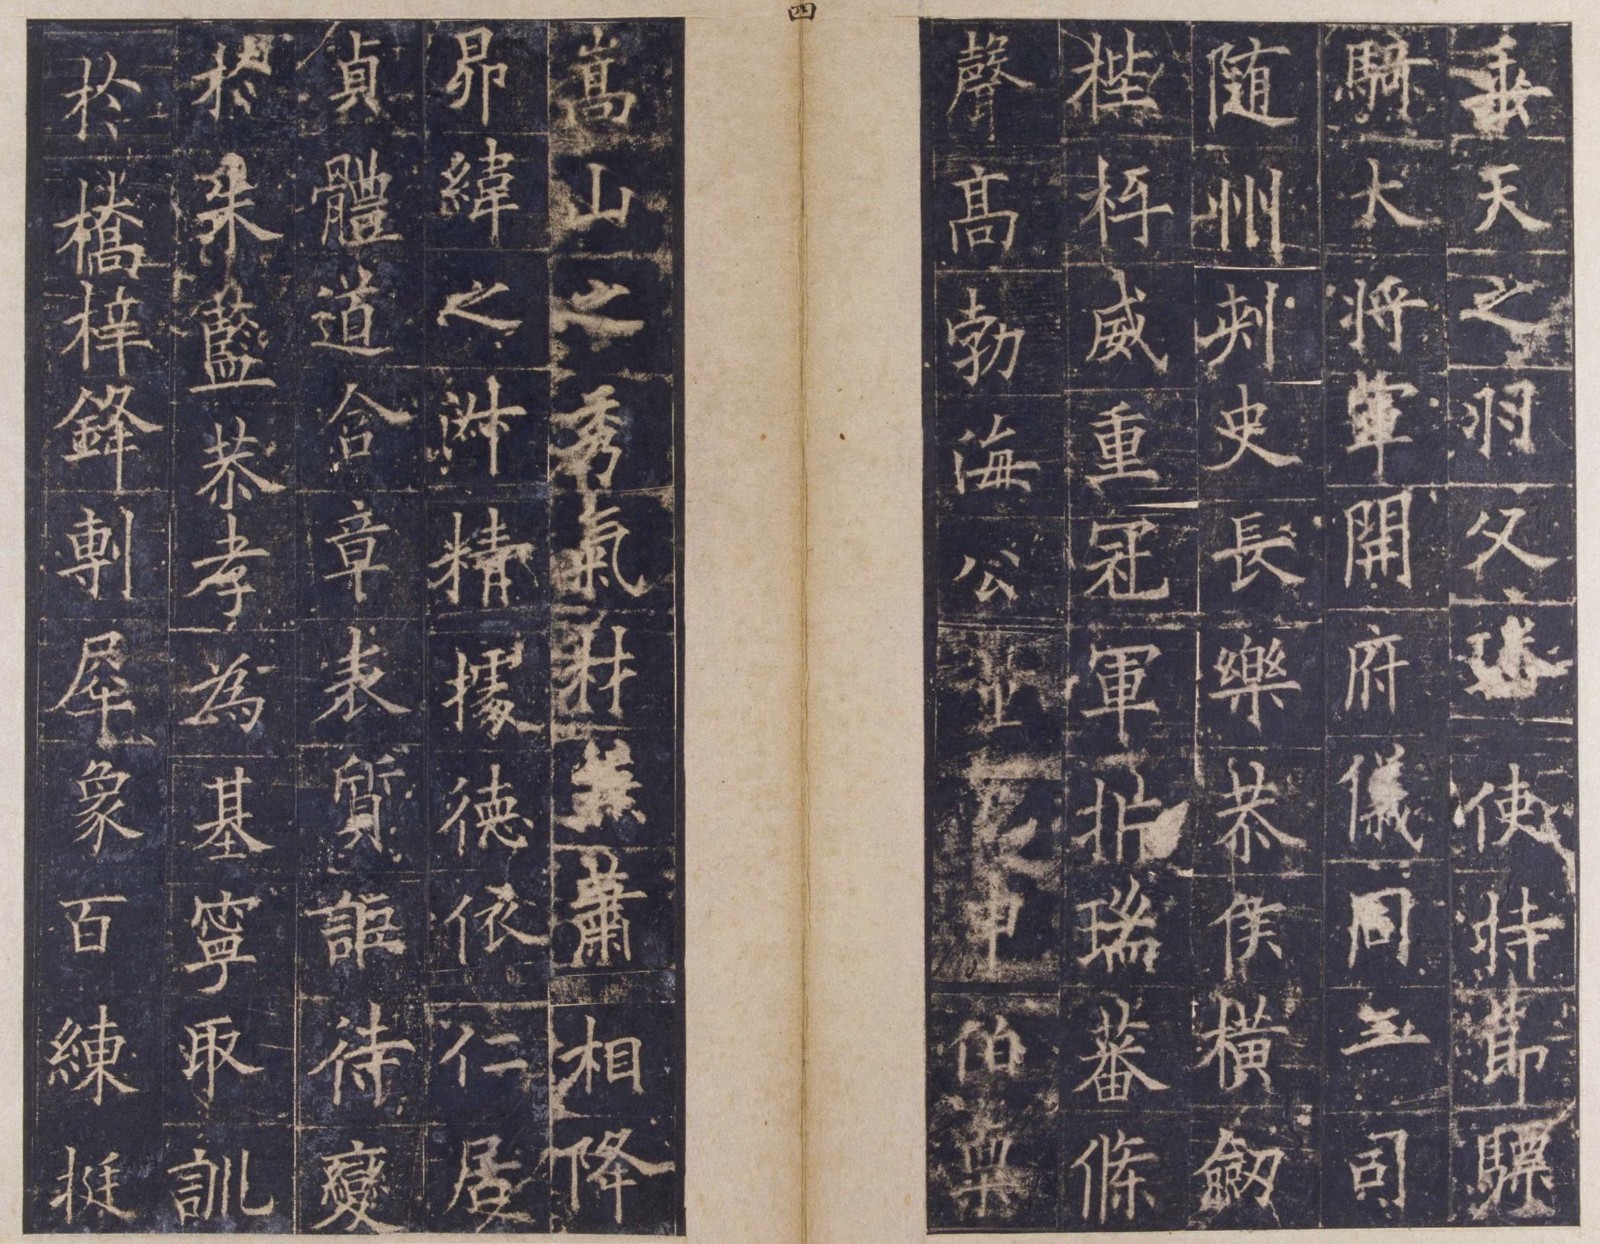 四
垂天之羽父璠使持節驃
騎大將軍開府儀同三司
随州刺史長樂恭侯横劒
梐枑威重冠軍析瑞蕃條
聲髙勃海公量包申伯稟
嵩山之秀氣材兼蕭相降
昴緯之淑精據德依仁居
貞體道含章表質詎待變
於朱藍恭孝為基寧取訓
於橋梓鋒剸犀象百練挺